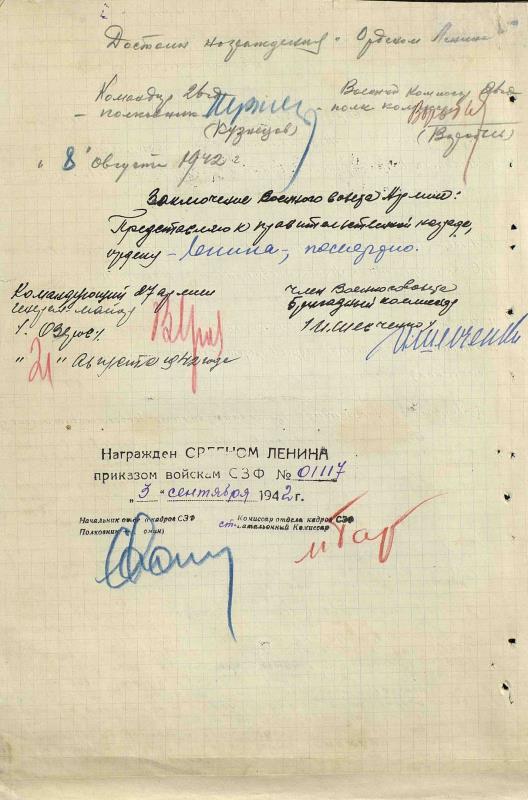 Достоин награждения Орденом Ленина
Командир
Военный Комиссар
- полковник
- полк. ком
(Кузнецов)
"8" Августа 1942 г.
Заключение Военного совета Армии:
Представляю к правительственной награде,
ордену - Ленина -, посмертно.
Командующий 27 армии
член Военного совета
Генерал-майор
бригадный комиссар
/Озеров/
/И.Шевченко/
"21" Августа 1942 года
Награжден ОРДЕНОМ ЛЕНИНА
приказом войскам СЗФ № 01117
"3" сентября 1942 г.
Начальник отдела кадров СЗФ
Комиссар отдела кадров СЗФ
Полковник
ст. батальонный Комиссар